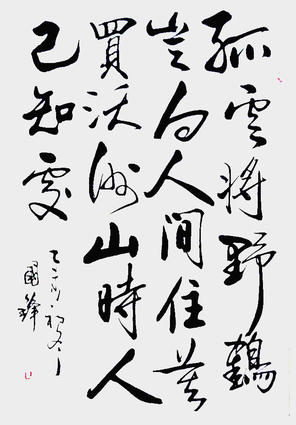 孤雲將野鶴
豈向人間住莫
買沃洲山時人
已知處
國鋒